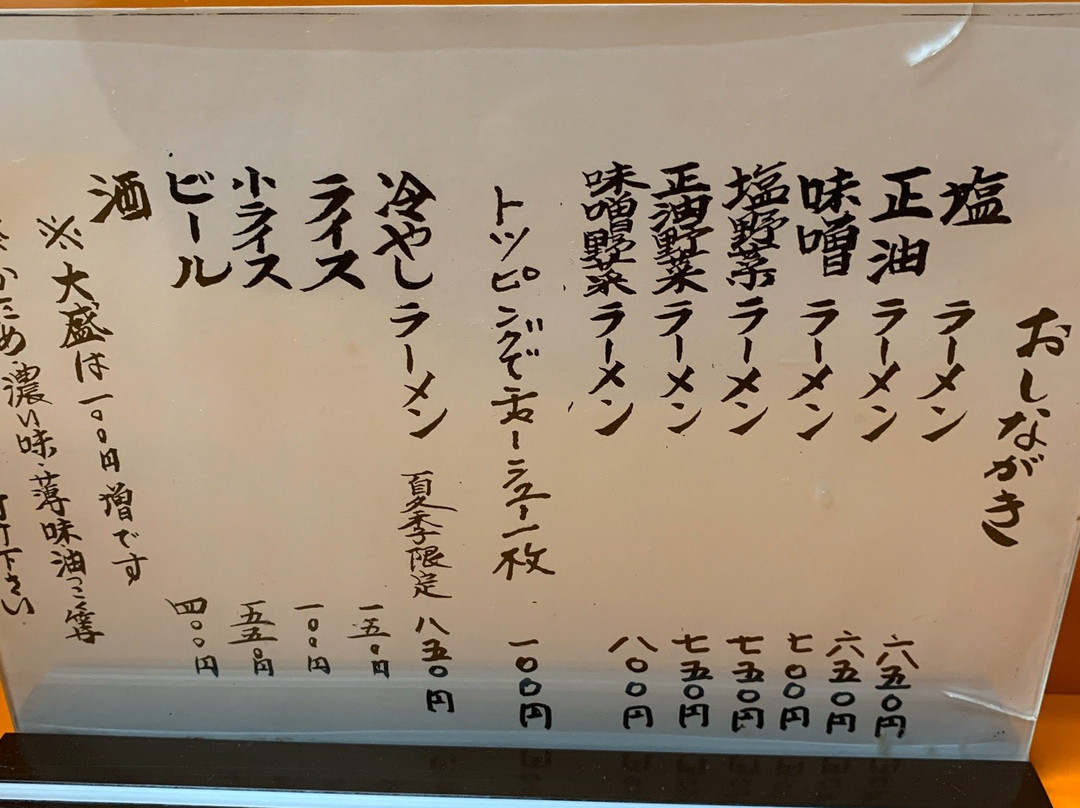 おしながき
塩ラーメン 六五〇円
正油ラーメン 六五〇円
味噌ラーメン 七〇〇円
塩野菜ラーメン 七五〇円
正油野菜ラーメン 七五〇円
味噌野菜ラーメン 八〇〇円
トッピングでチャーシュー一枚 一〇〇円
冷やしラーメン 夏季限定 八五〇円
ライス 一五〇円
小ライス 一〇〇円
ビール 五五〇円
酒 四〇〇円
※大盛は一〇〇円増です
※かため、濃い味、薄味、油っこく等
下さい